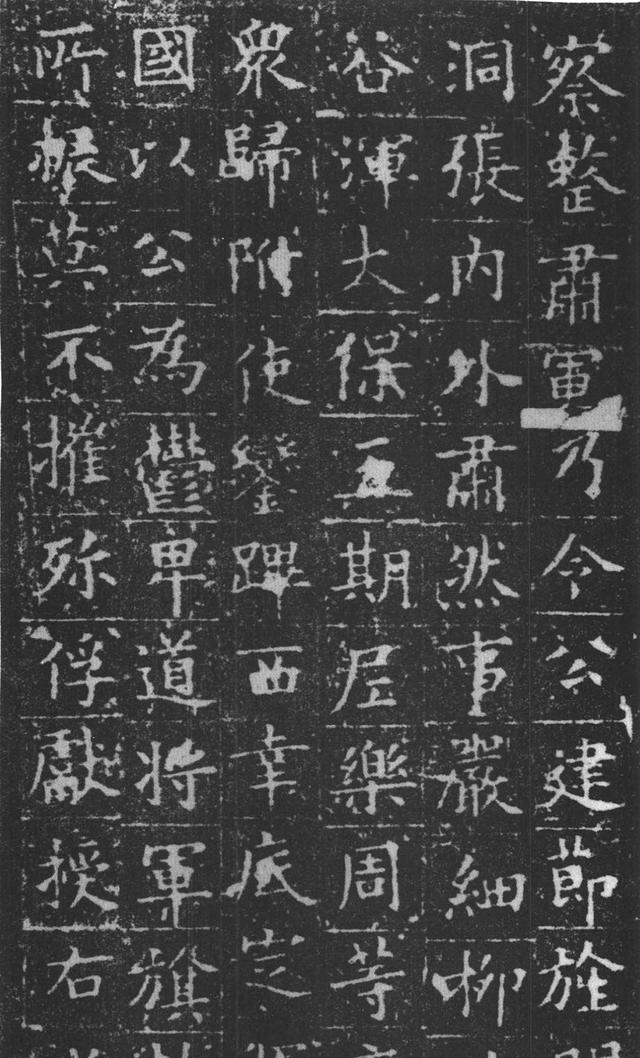 察整肅軍乃令公建節旌
洞張內外肅然事嚴細柳
谷渾大保五期尼樂周等
衆歸附使鑾蹕西幸底定
國以公為鬱卑道將軍旗
所莫不摧殄俘獻授右